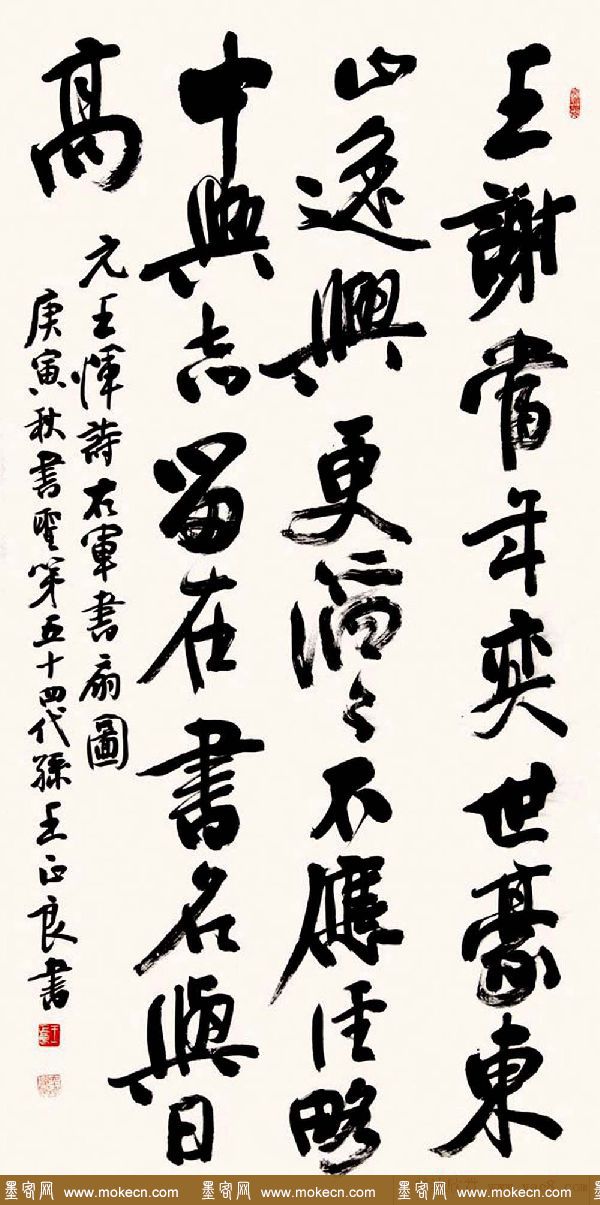 王謝當年奕世豪東
山逸興更滔々不應經略
中興志留在書名與日
高
元王惲詩右軍書扇圖
庚寅秋書聖第五十四代孫王正良書
墨客网 www.mokecn.com 墨客网 www.mokecn.com 墨客网 www.mokecn.com